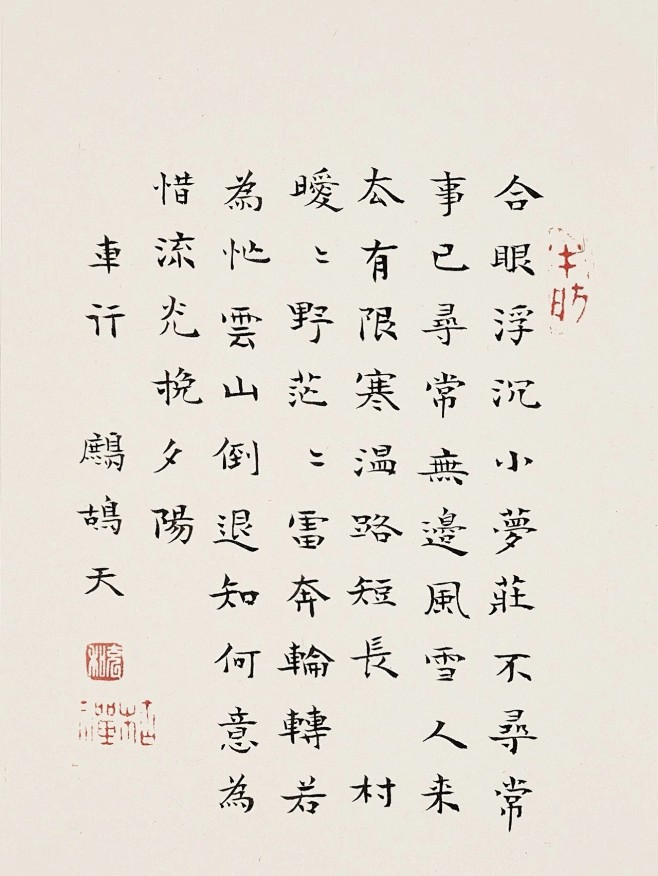 合眼浮沉小夢莊不尋常
事已尋常無邊風雪人来
厺有限寒温路短長　村
曖〻野茫〻雷奔輪轉若
為忙雲山倒退知何意為
惜流光挽夕陽
車行　鷓鴣天